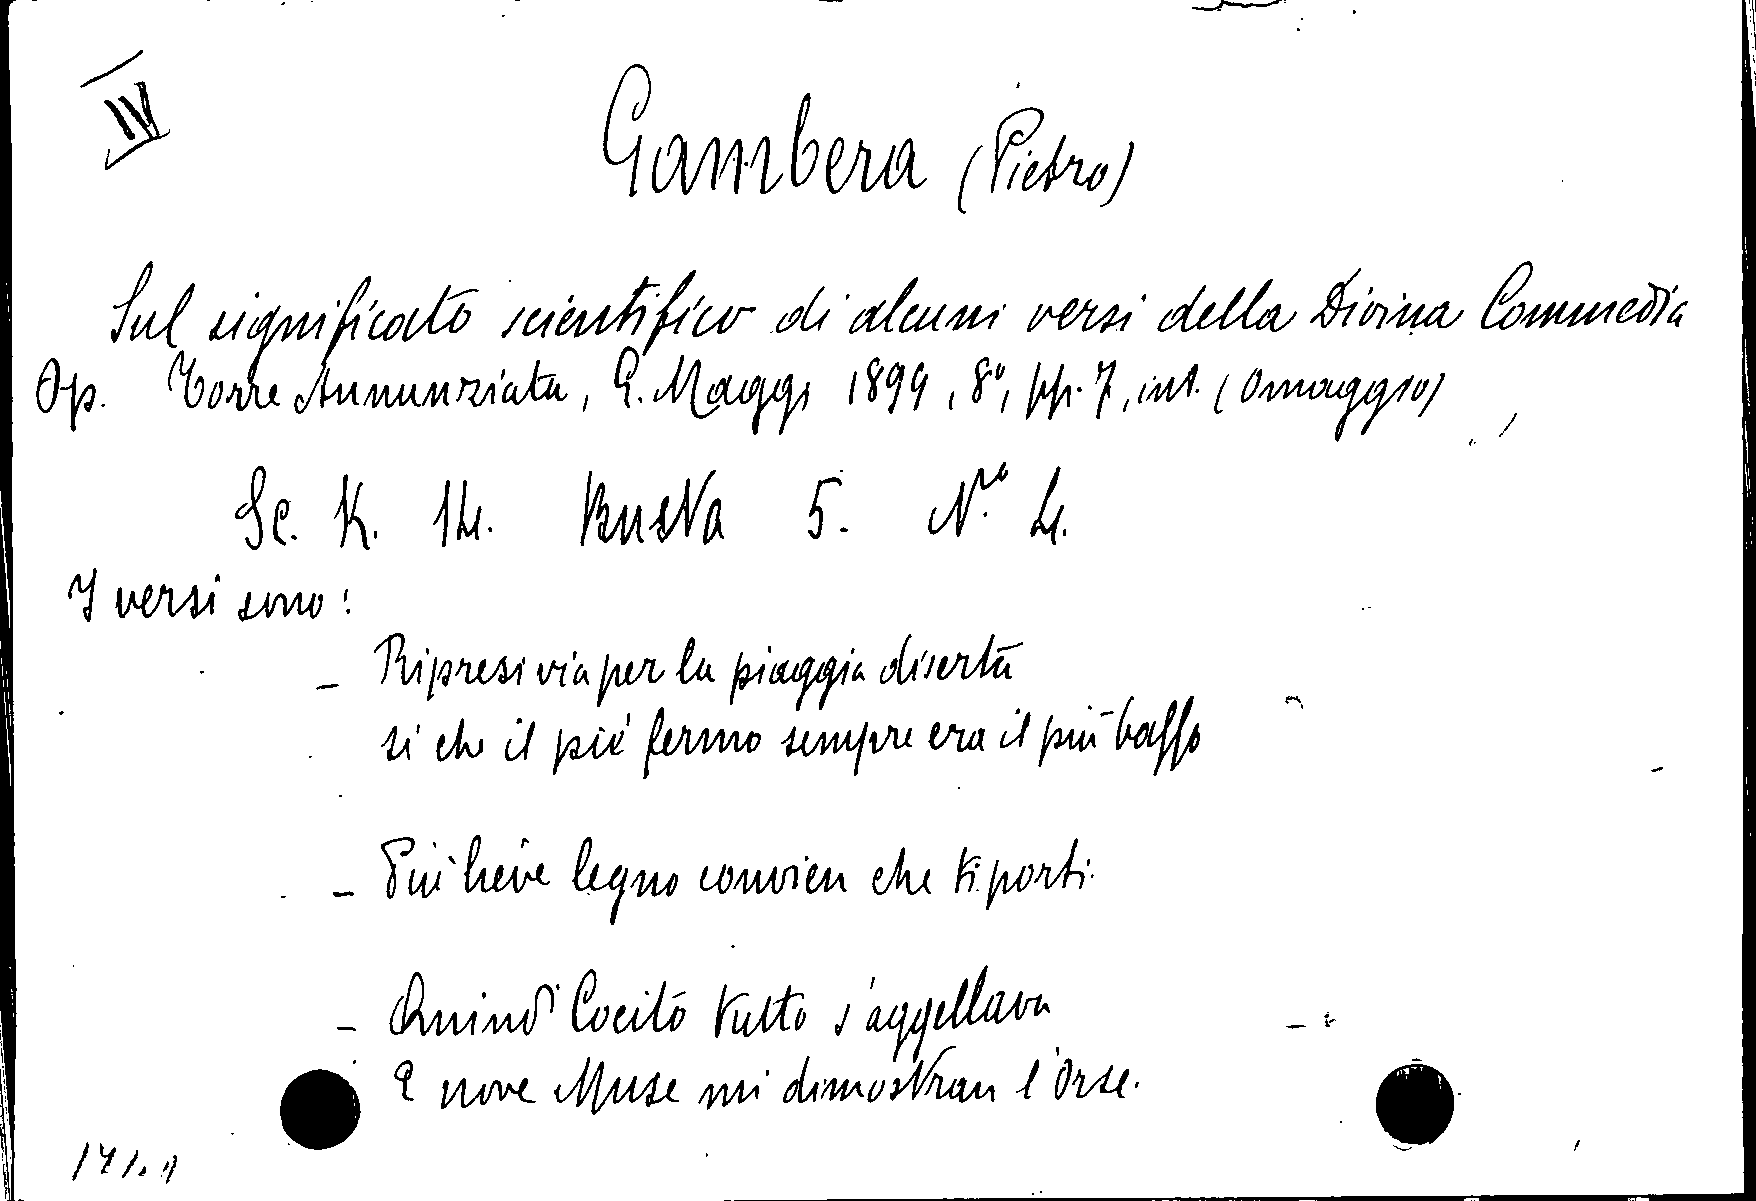 IV
Gambera (Pietro)
Sul significato scientifico di alcuni versi della Divina Commedia
Op. Torre Annunziata, G. Maggi 1899, 8°, pp. 7, int. (Omaggio)
Sc. K. 14. Busta 5. N.ro 4.
I versi sono:
- Ripresi via per la piaggia diserta
si che il piè fermo sempre era il più basso
- Più lieve legno convien che ti porti.
- Quindi Cocito tutto s'aggellava
E nove Muse mi dimostran l'Orse.